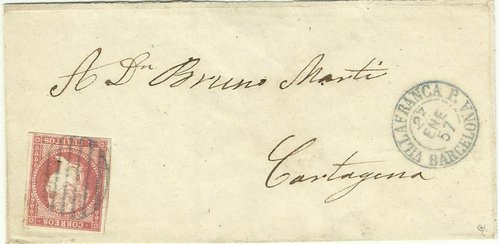 A Dn Bruno Marti
Cartagena
VILLAFRANCA P.
27
ENE
57
BARCELONA
CORREOS
CUARTOS